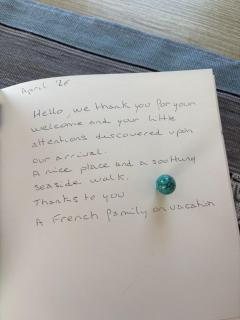 April '26
Hello, we thank you for your
welcome and your little
attentions discovered upon
our arrival.
A nice place and a soothing
seaside walk.
Thanks to you
A French family on vacation